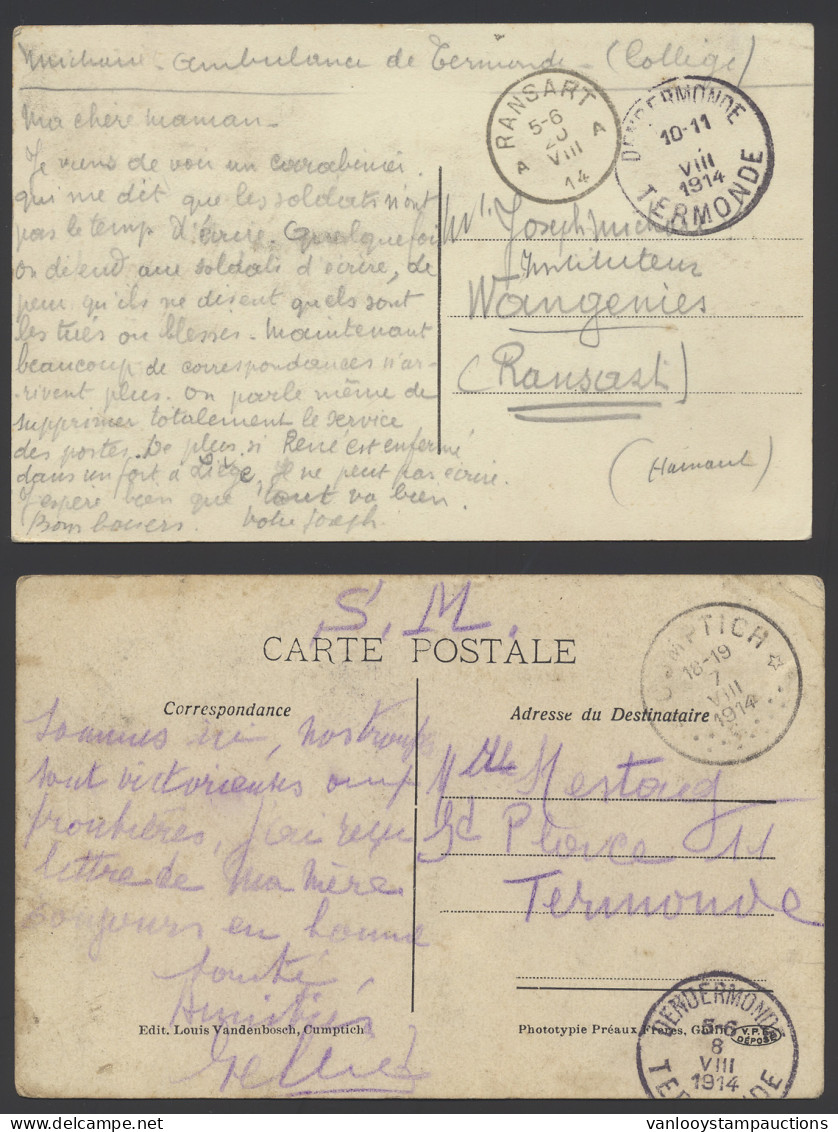 Ambulance de Termonde - (Collège)
Ma chère maman -
Je viens de voir un carabinier
qui me dit que les soldats n'ont
pas le temps d'écrire. Quelquefois
on défend aux soldats d'écrire, de
peur qu'ils ne disent quels sont
les tués ou blessés. Maintenant
beaucoup de correspondances n'ar-
rivent plus. On parle même de
supprimer totalement le service
des postes. De plus, si René est enfermé
dans un fort à Liège, il ne peut pas écrire.
J'espère bien que tout va bien.
Bons baisers. Votre Joseph
RANSART
5-6
20
VIII
14
A A
DENDERMONDE
10-11
VIII
1914
TERMONDE
Mr. Joseph
Instituteur
Wangenies
(Ransart)
(Hainaut)
S. M.
CARTE POSTALE
CUMPTICH
18-19
7
VIII
1914
Correspondance
Adresse du Destinataire
nos troupes
sont victorieuses aux
frontières, j'ai reçu
lettre de Ma Mère
toujours en bonne
santé,
Amitiés
Mlle Mestag
Gd Place 11
Termonde
Edit. Louis Vandenbosch, Cumptich
Phototypie Préaux Frères, Ghlin
V.P.F.
DÉPOSÉ
DENDERMONDE
5-6
8
VIII
1914
TERMONDE
vanlooystampauctions